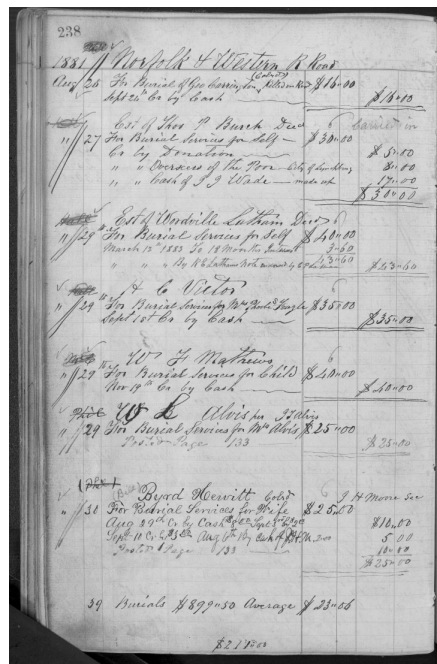 238
1881 Norfolk & Western R Road
Aug 26 For Burial of Geo Carrington (Colored) Killed on Road $16.00
Sept 24th Cr by Cash $16.00
Est of Thos P. Burch Decd
" 27 For Burial Services for Self $30.00
Cr by Donation $5.00
" " Overseers of the Poor City of Lynchburg
" " Cash of J Wade made up 17.00
$30.00
Est of Wordville Latham Decd
" 29 For Burial Services for Self $40.00
March 13th 1883 To 18 Months Interest 3.60
43.60
" " By Latham Note $43.60
H C Victor
" 29 For Burial Services for Mrs $35.00
Sept 1st Cr by Cash $35.00
W H Mathews
" 29 For Burial Services for Child $40.00
Nov 19th Cr by Cash $40.00
W L Alvis per Alvis
" 29 For Burial Services for Mrs Alvis $25.00
Posted Page 133 $25.00
Byrd Hewitt Cold J H Moore Sec
" 30 For Burial Services for Wife $25.00
Aug 29th Cr by Cash $10.00
Sept 10 Cr 5.00
10.00
Posted Page 133 $25.00
39 Burials $899.50 Average $23.06